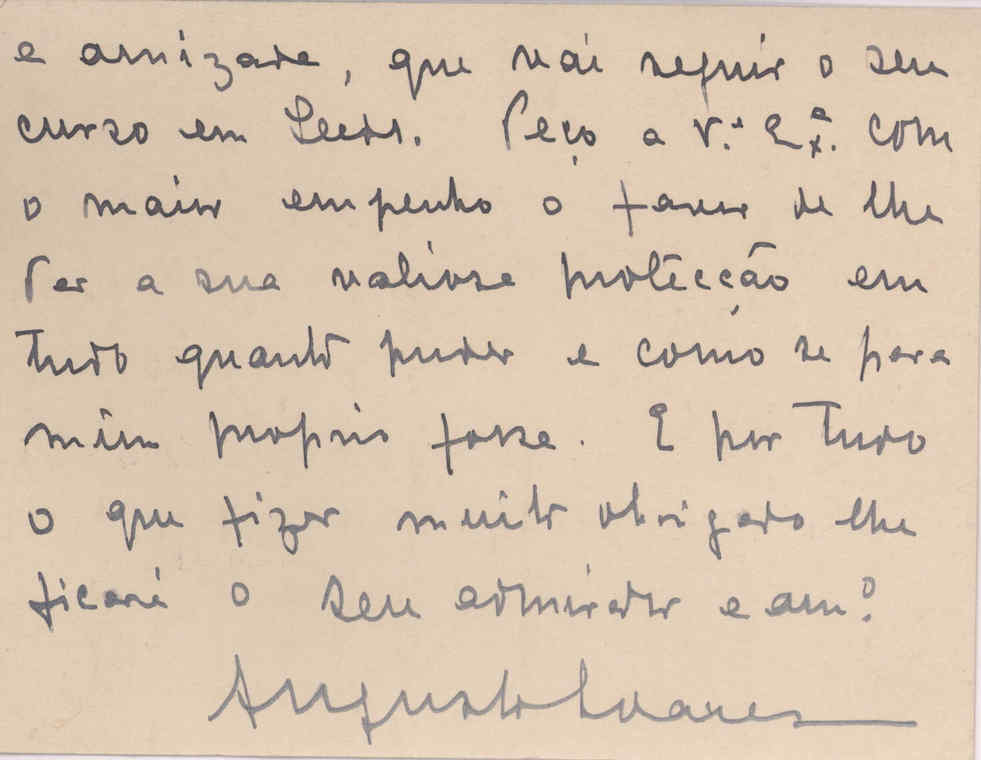 e amizade, que vai seguir o seu
curso em Leeds. Peço a V.ª Ex.ª com
o maior empenho o favor de lhe
dar a sua valiosa protecção em
tudo quanto puder e como se para
mim proprio fosse. E por tudo
o que fizer muito obrigado lhe
ficará o seu admirador e amº
Augusto Soares